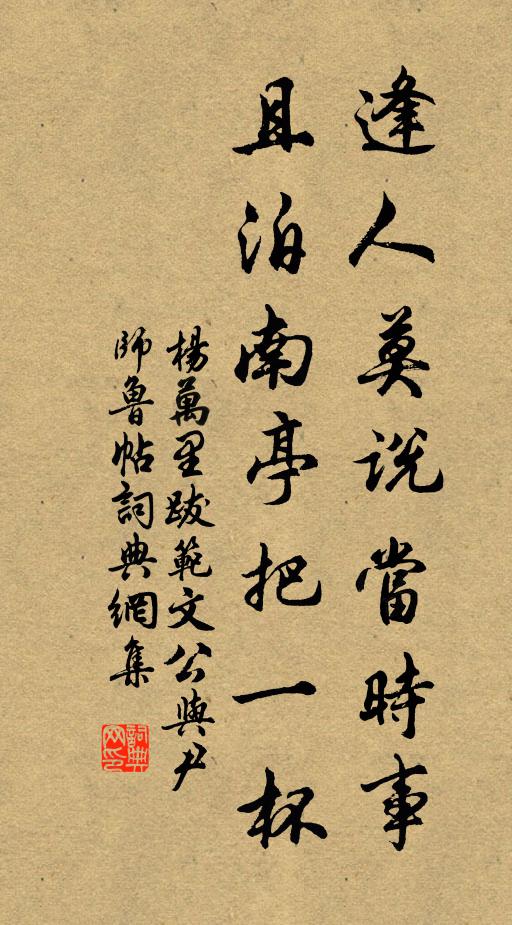 逢人莫說當時事
且泊南亭把一杯
楊萬里跋範文公與尹
師魯帖詞典網集
詞典
网印